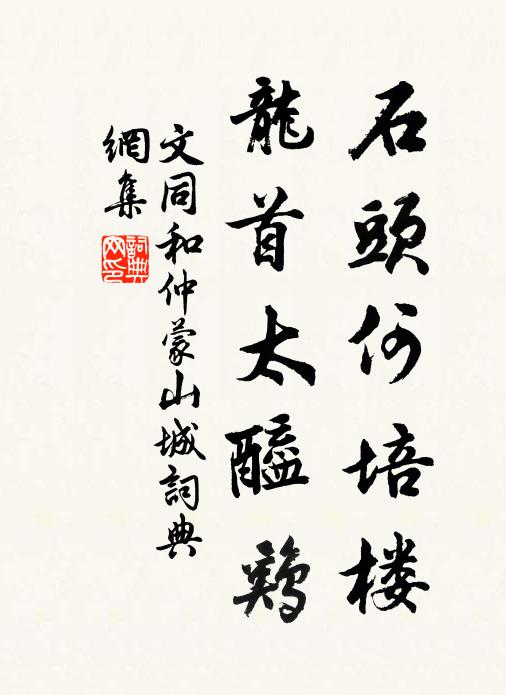 石頭何培楼
龍首太醯鷄
文同和仲蒙山城詞典
網集
詞典
网印